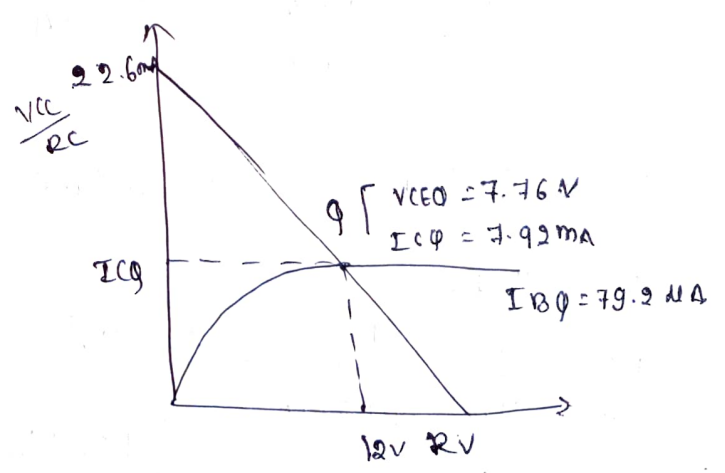 22.60mA
VCC
RC
Q VCEQ = 7.76 V
ICQ = 7.92mA
ICQ
IBQ = 79.2 μA
12V RV